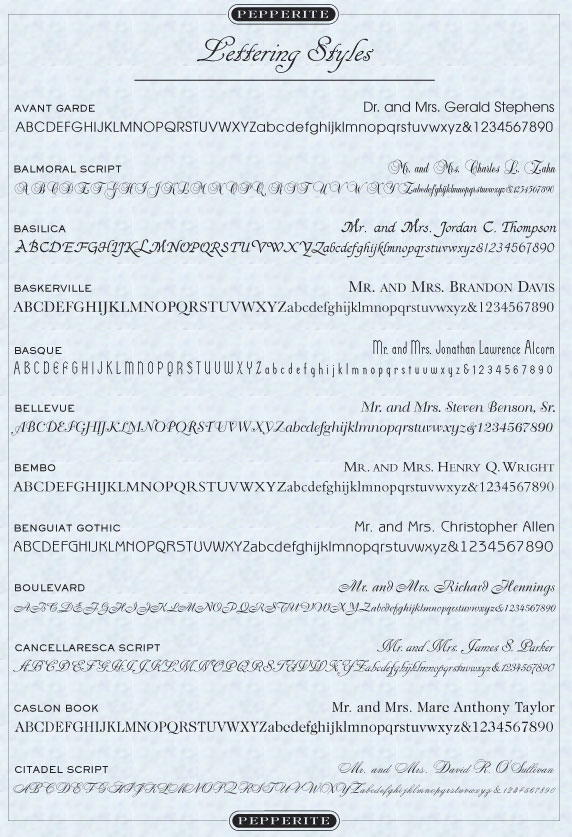 PEPPERITE
Lettering Styles
AVANT GARDE Dr. and Mrs. Gerald Stephens
ABCDEFGHIJKLMNOPQRSTUVWXYZabcdefghijklmnopqrstuvwxyz&1234567890
BALMORAL SCRIPT Mr. and Mrs. Charles L. Zahn
ABCDEFGHIJKLMNOPQRSTUVWXYZabcdefghijklmnopqrstuvwxyz&1234567890
BASILICA Mr. and Mrs. Jordan C. Thompson
ABCDEFGHIJKLMNOPQRSTUVWXYZabcdefghijklmnopqrstuvwxyz&1234567890
BASKERVILLE MR. AND MRS. BRANDON DAVIS
ABCDEFGHIJKLMNOPQRSTUVWXYZabcdefghijklmnopqrstuvwxyz&1234567890
BASQUE Mr. and Mrs. Jonathan Lawrence Alcorn
ABCDEFGHIJKLMNOPQRSTUVWXYZabcdefghijklmnopqrstuvwxyz&1234567890
BELLEVUE Mr. and Mrs. Steven Benson, Sr.
ABCDEFGHIJKLMNOPQRSTUVWXYZabcdefghijklmnopqrstuvwxyz&1234567890
BEMBO MR. AND MRS. HENRY Q. WRIGHT
ABCDEFGHIJKLMNOPQRSTUVWXYZabcdefghijklmnopqrstuvwxyz&1234567890
BENGUIAT GOTHIC Mr. and Mrs. Christopher Allen
ABCDEFGHIJKLMNOPQRSTUVWXYZabcdefghijklmnopqrstuvwxyz&1234567890
BOULEVARD Mr. and Mrs. Richard Hennings
ABCDEFGHIJKLMNOPQRSTUVWXYZabcdefghijklmnopqrstuvwxyz&1234567890
CANCELLARESCA SCRIPT Mr. and Mrs. James S. Parker
ABCDEFGHIJKLMNOPQRSTUVWXYZabcdefghijklmnopqrstuvwxyz&1234567890
CASLON BOOK Mr. and Mrs. Marc Anthony Taylor
ABCDEFGHIJKLMNOPQRSTUVWXYZabcdefghijklmnopqrstuvwxyz&1234567890
CITADEL SCRIPT Mr. and Mrs. David R. O'Sullivan
ABCDEFGHIJKLMNOPQRSTUVWXYZabcdefghijklmnopqrstuvwxyz&1234567890
PEPPERITE